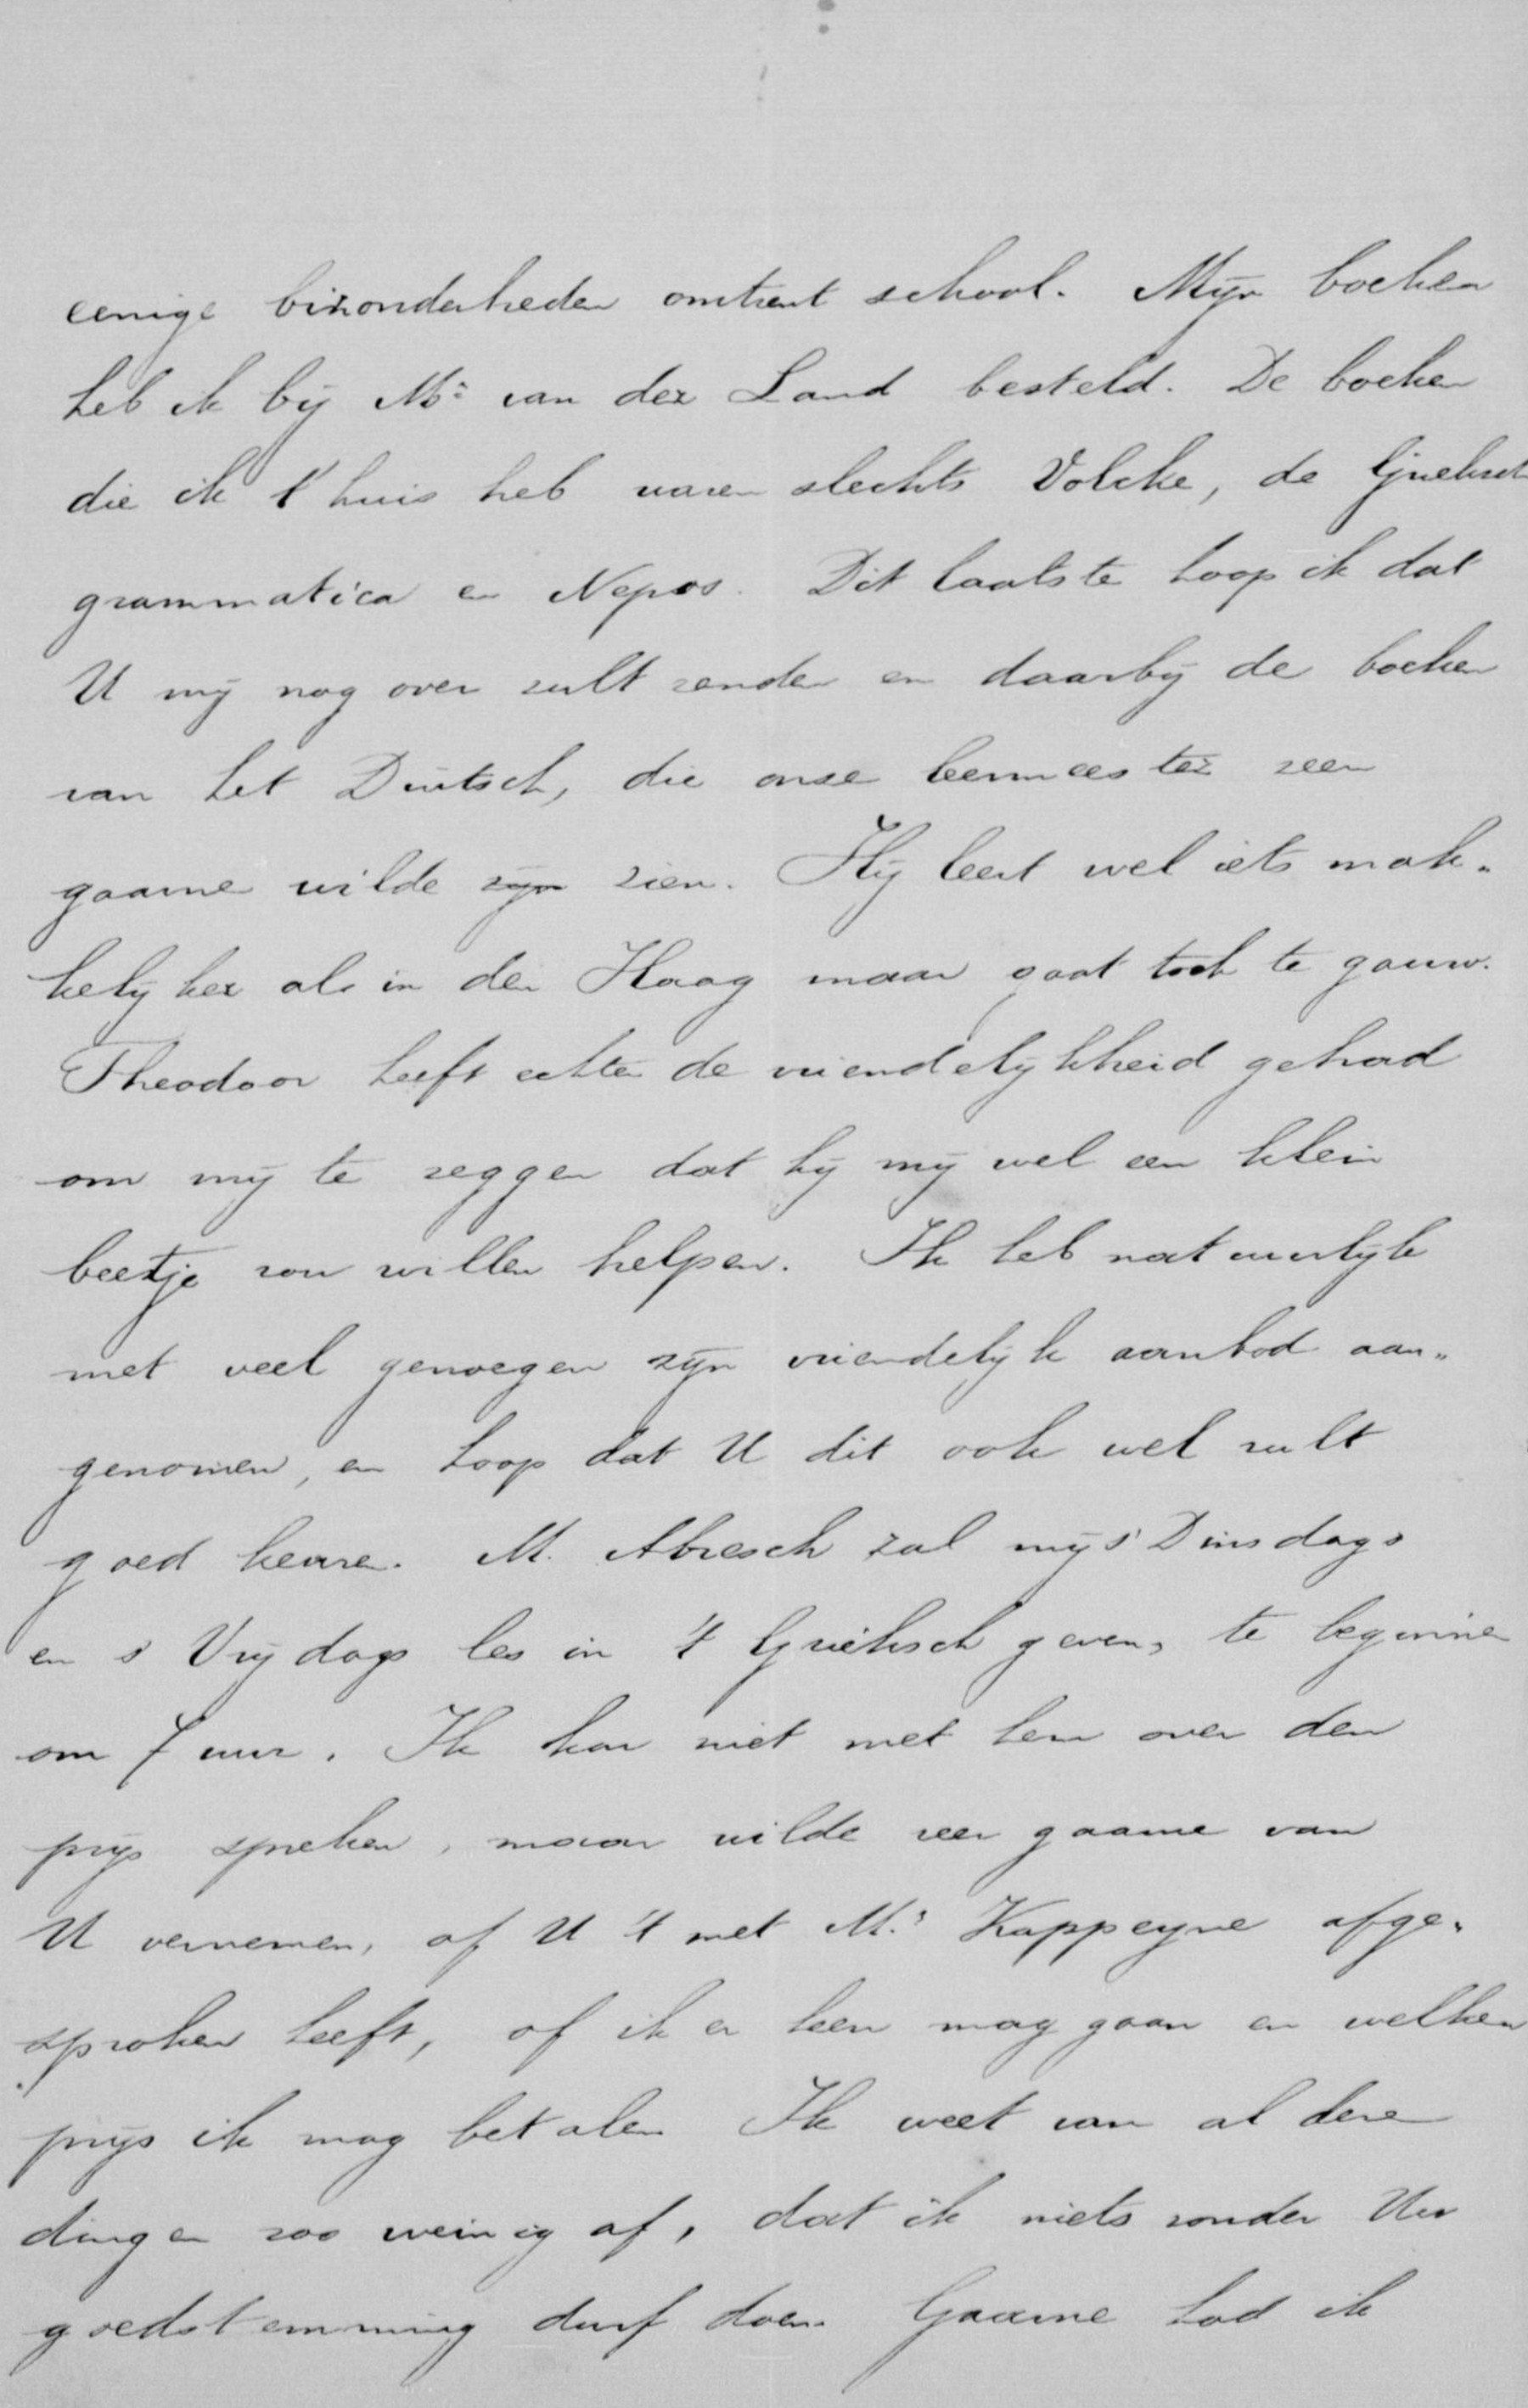 eenige bizonderheden omtrent school. Mijn boeken
heb ik bij Mr van der Land besteld. De boeken
die ik t'huis heb waren slechts Volcke, de Grieksch
grammatica en Nepos. Dit laatste hoop ik dat
U mij nog over zult zenden en daarbij de boeken
van het Duitsch, die onze leermeester zeer
gaarne wilde zijn zien. Hij leert wel iets mak-
kelijker als in den Haag maar gaat toch te gauw.
Theodoor heeft echter de vriendelijkheid gehad
om mij te zeggen dat hij mij wel een klein
beetje zou willen helpen. Ik heb natuurlijk
met veel genoegen zijn vriendelijk aanbod aan-
genomen, en hoop dat U dit ook wel zult
goed keuren. M. Abresch zal mij s' Dinsdags
en s' Vrijdags les in 't Grieksch geven, te beginnen
om 7 uur. Ik kon niet met hem over den
prijs spreken, maar wilde zeer gaarne van
U vernemen, of U 't met Mr Kappeyne afge-
sproken heeft, of ik er heen mag gaan en welken
prijs ik mag betalen Ik weet van al deze
dingen zoo weinig af, dat ik niets zonder Uw
goedstemming durf doen. Gaarne had ik